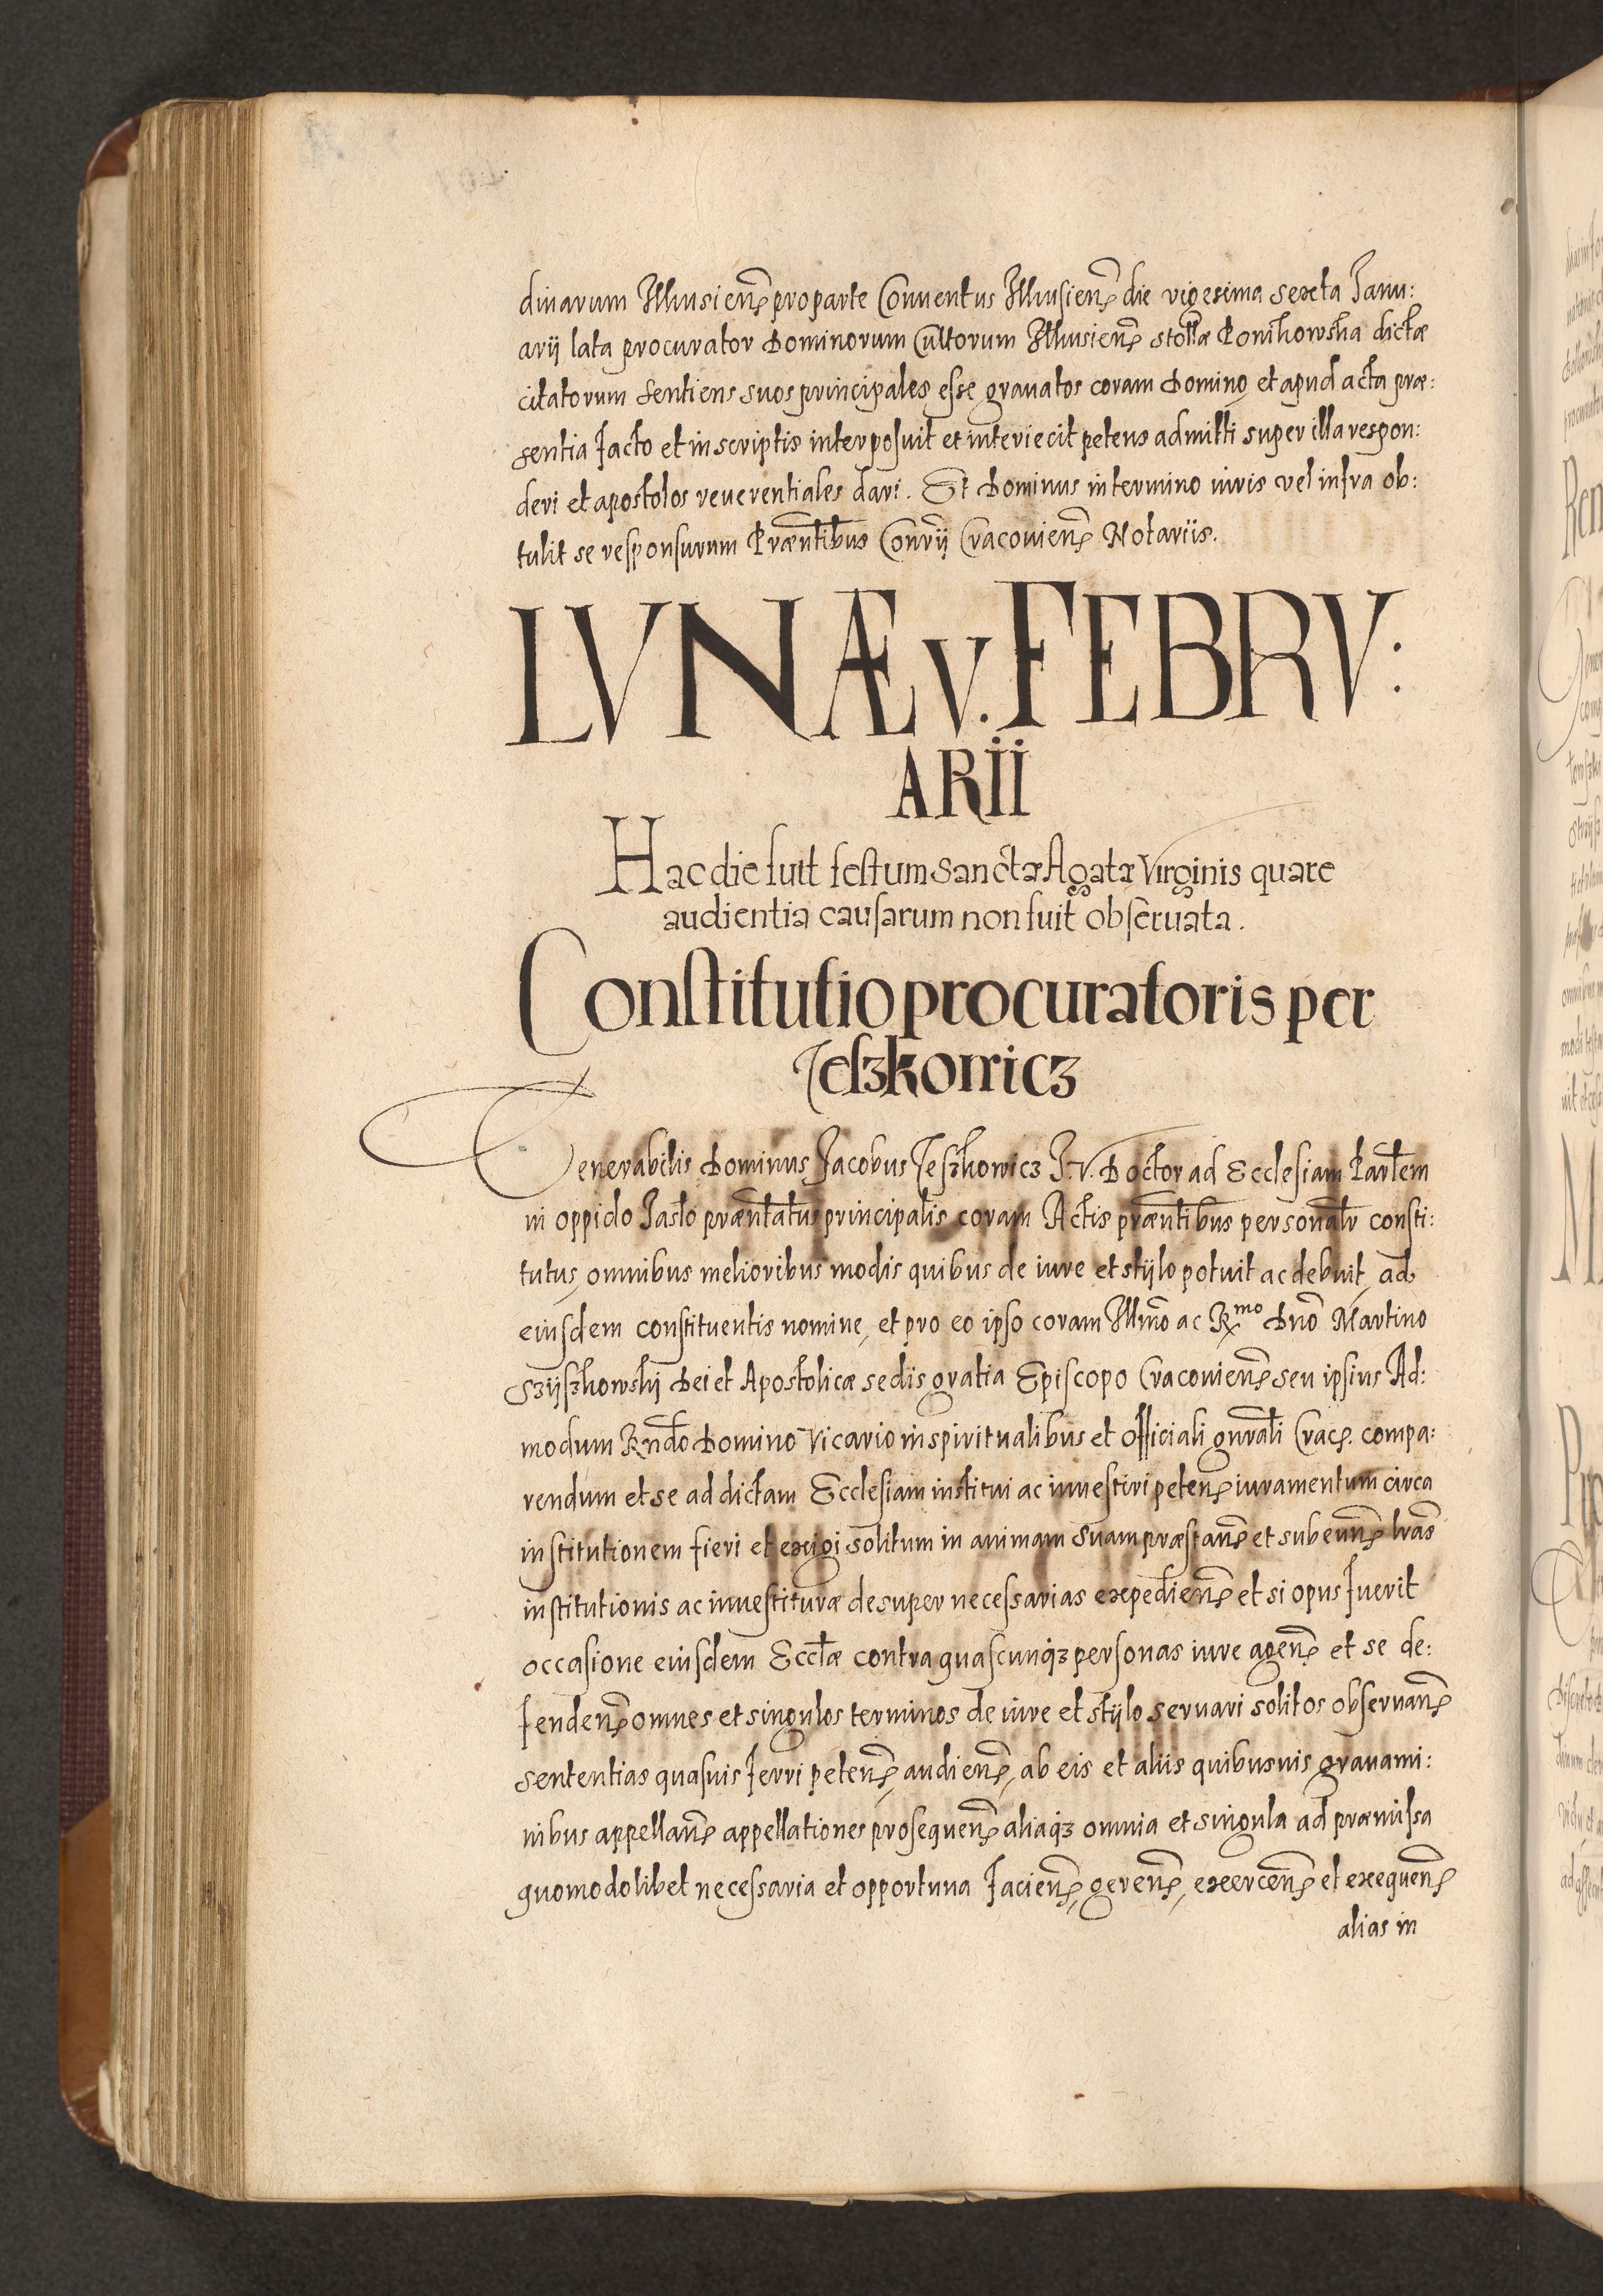 dinarum Illkusiens pro parte Conuentus Ilkusiens die vigesima sexta Janu:
arij lata procurator Dominorum Cultorum Ilkusiens stollæ Ponikowska dictæ
citatorum sentiens suos principales esse grauatos coram Domino, et apud acta præ:
sentia facto et in scriptis interposuit et interiecit petens admitti super illa respon:
deri et apostolos reuerentiales dari. Et Dominus in termino iuris vel infra ob:
tulit se responsurum Præntibus Conrij Cracouiens Notariis.
LVNÆ V. FEBRV:
ARII
Hac die fuit festum Sanctæ Agatæ Virginis quare
audientia causarum non fuit obseruata.
Constitutio procuratoris per
Jeszkowicz
Venerabilis Dominus Jacobus Jeszkowicz J. V. Doctor ad Ecclesiam Parlem
in oppido Jaslo præntatus principalis coram Actis præntibus personalr consti:
tutus, omnibus melioribus modis quibus de iure et stijlo potuit ac debuit, ad
eiusdem constituentis nomine, et pro eo ipso coram Illmo ac Rmo Dno Martino
Szijszkowskij Dei et Apostolicæ sedis gratia Episcopo Cracouiens seu ipsius Ad:
modum Rndo Domino Vicario in spiritualibus et Officiali gnrali Crac. compa:
rendum et se ad dictam Ecclesiam institui ac inuestiri petens iuramentum circa
institutionem fieri et exigi solitum in animam suam præstans et subeuns lras
institutionis ac inuestituræ desuper necessarias expediens et si opus fuerit
occasione eiusdem Ecclæ contra quascunq3 personas iure agens et se de:
fendens omnes et singulos terminos de iure et stijlo seruari solitos obseruans
sententias quasuis ferri petens, audiens, ab eis et aliis quibusuis grauami:
nibus appellans appellationes prosequens aliaq3 omnia et singula ad præmissa
quomodolibet necessaria et opportuna faciens, gerens, exercens et exequens
alias in